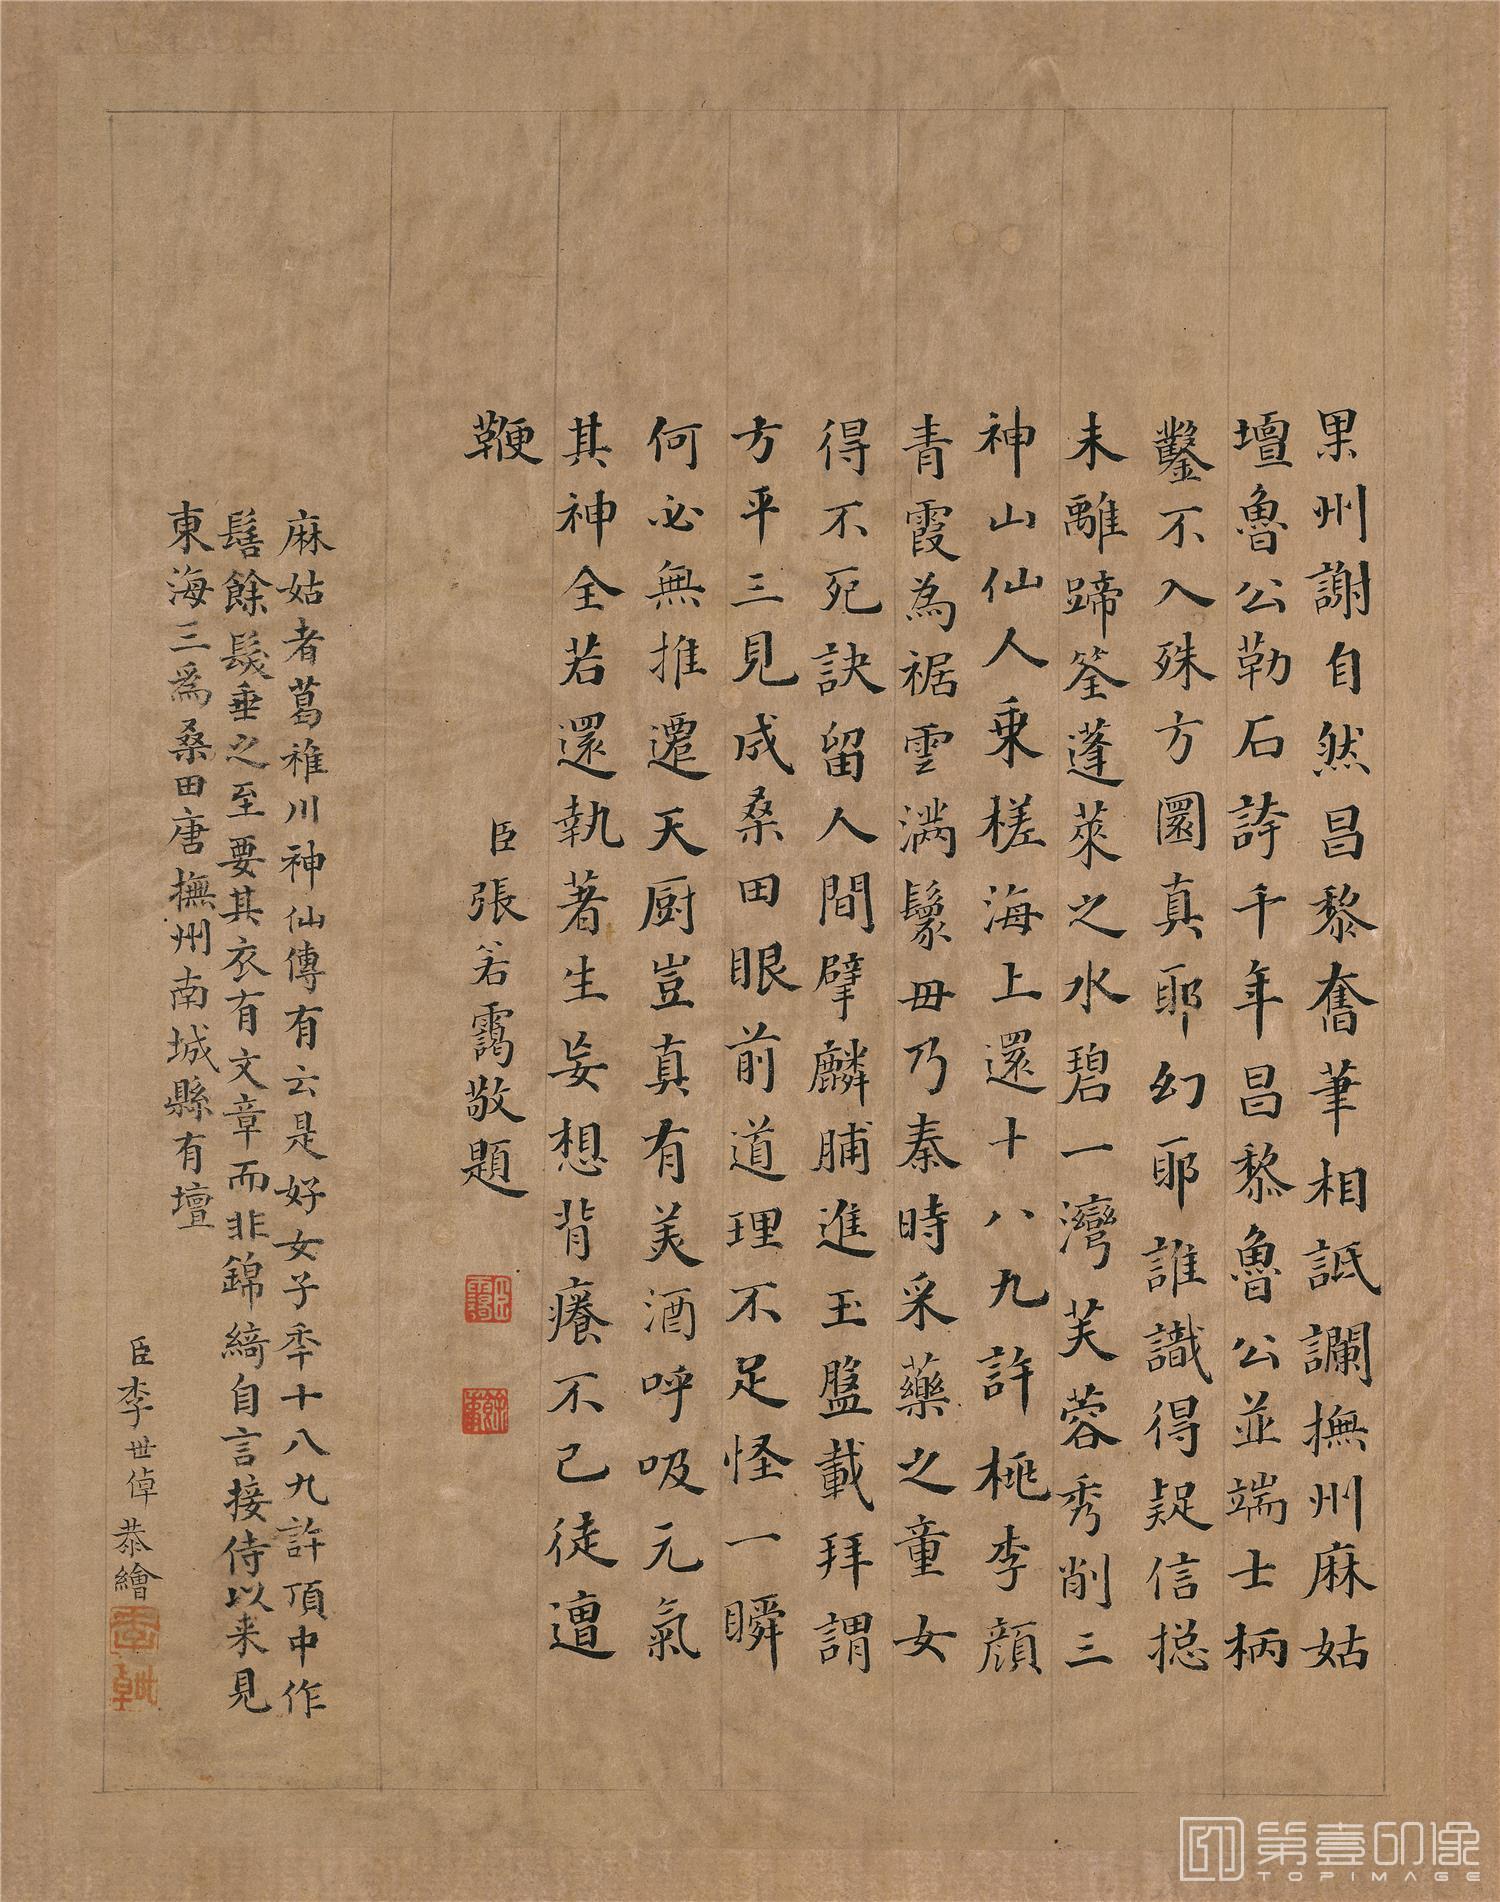 果州謝自然昌黎奮筆相詆讕撫州麻姑
壇魯公勒石誇千年昌黎魯公並端士柄
鑿不入殊方圓真耶幻耶誰識得疑信揔
未離蹄筌蓬萊之水碧一灣芙蓉秀削三
神山仙人乗槎海上還十八九許桃李顔
青霞為裾雲滿鬟毋乃秦時采藥之童女
得不死訣留人間擘麟脯進玉盤載拜謂
方平三見成桑田眼前道理不足怪一瞬
何必無推遷天厨豈真有美酒呼吸元氣
其神全若還執著生妄想背癢不已徒遭
鞭
臣張若靄敬題
麻姑者葛稚川神仙傳有云是好女子年十八九許頂中作
髻餘髮垂之至要其衣有文章而非錦綺自言接侍以来見
東海三爲桑田唐撫州南城縣有壇
臣李世倬恭繪
第壹印像
TOPIMAGE